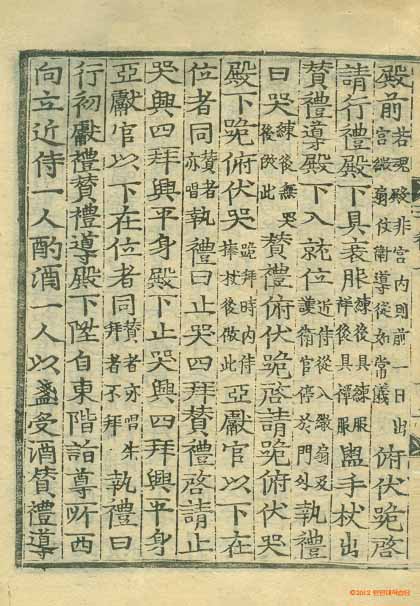 殿前若魂殿非宮内則前一日出宮繖扇仗衛導從如常儀俯伏跪啓
請行禮殿下具衰服練後具練服祥後具禫服盥手杖出
贊禮導殿下入就位近侍從入繖扇及護衛官停於門外執禮
曰哭練後無哭後倣此贊禮俯伏跪啓請跪俯伏哭
殿下跪俯伏哭跪拜時内侍捧杖後倣此亞獻官以下在
位者同贊者亦唱執禮曰止哭四拜贊禮啓請止
哭興四拜興平身殿下止哭興四拜興平身
亞獻官以下在位者同贊者亦唱先拜者不拜執禮曰
行初獻禮贊禮導殿下陞自東階詣尊所西
向立近侍一人酌酒一人以盞受酒贊禮導
©2012